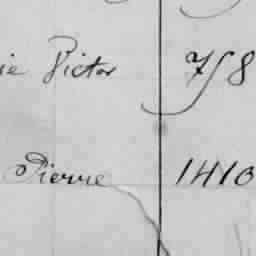 ie Victor 758
Pierre 1410